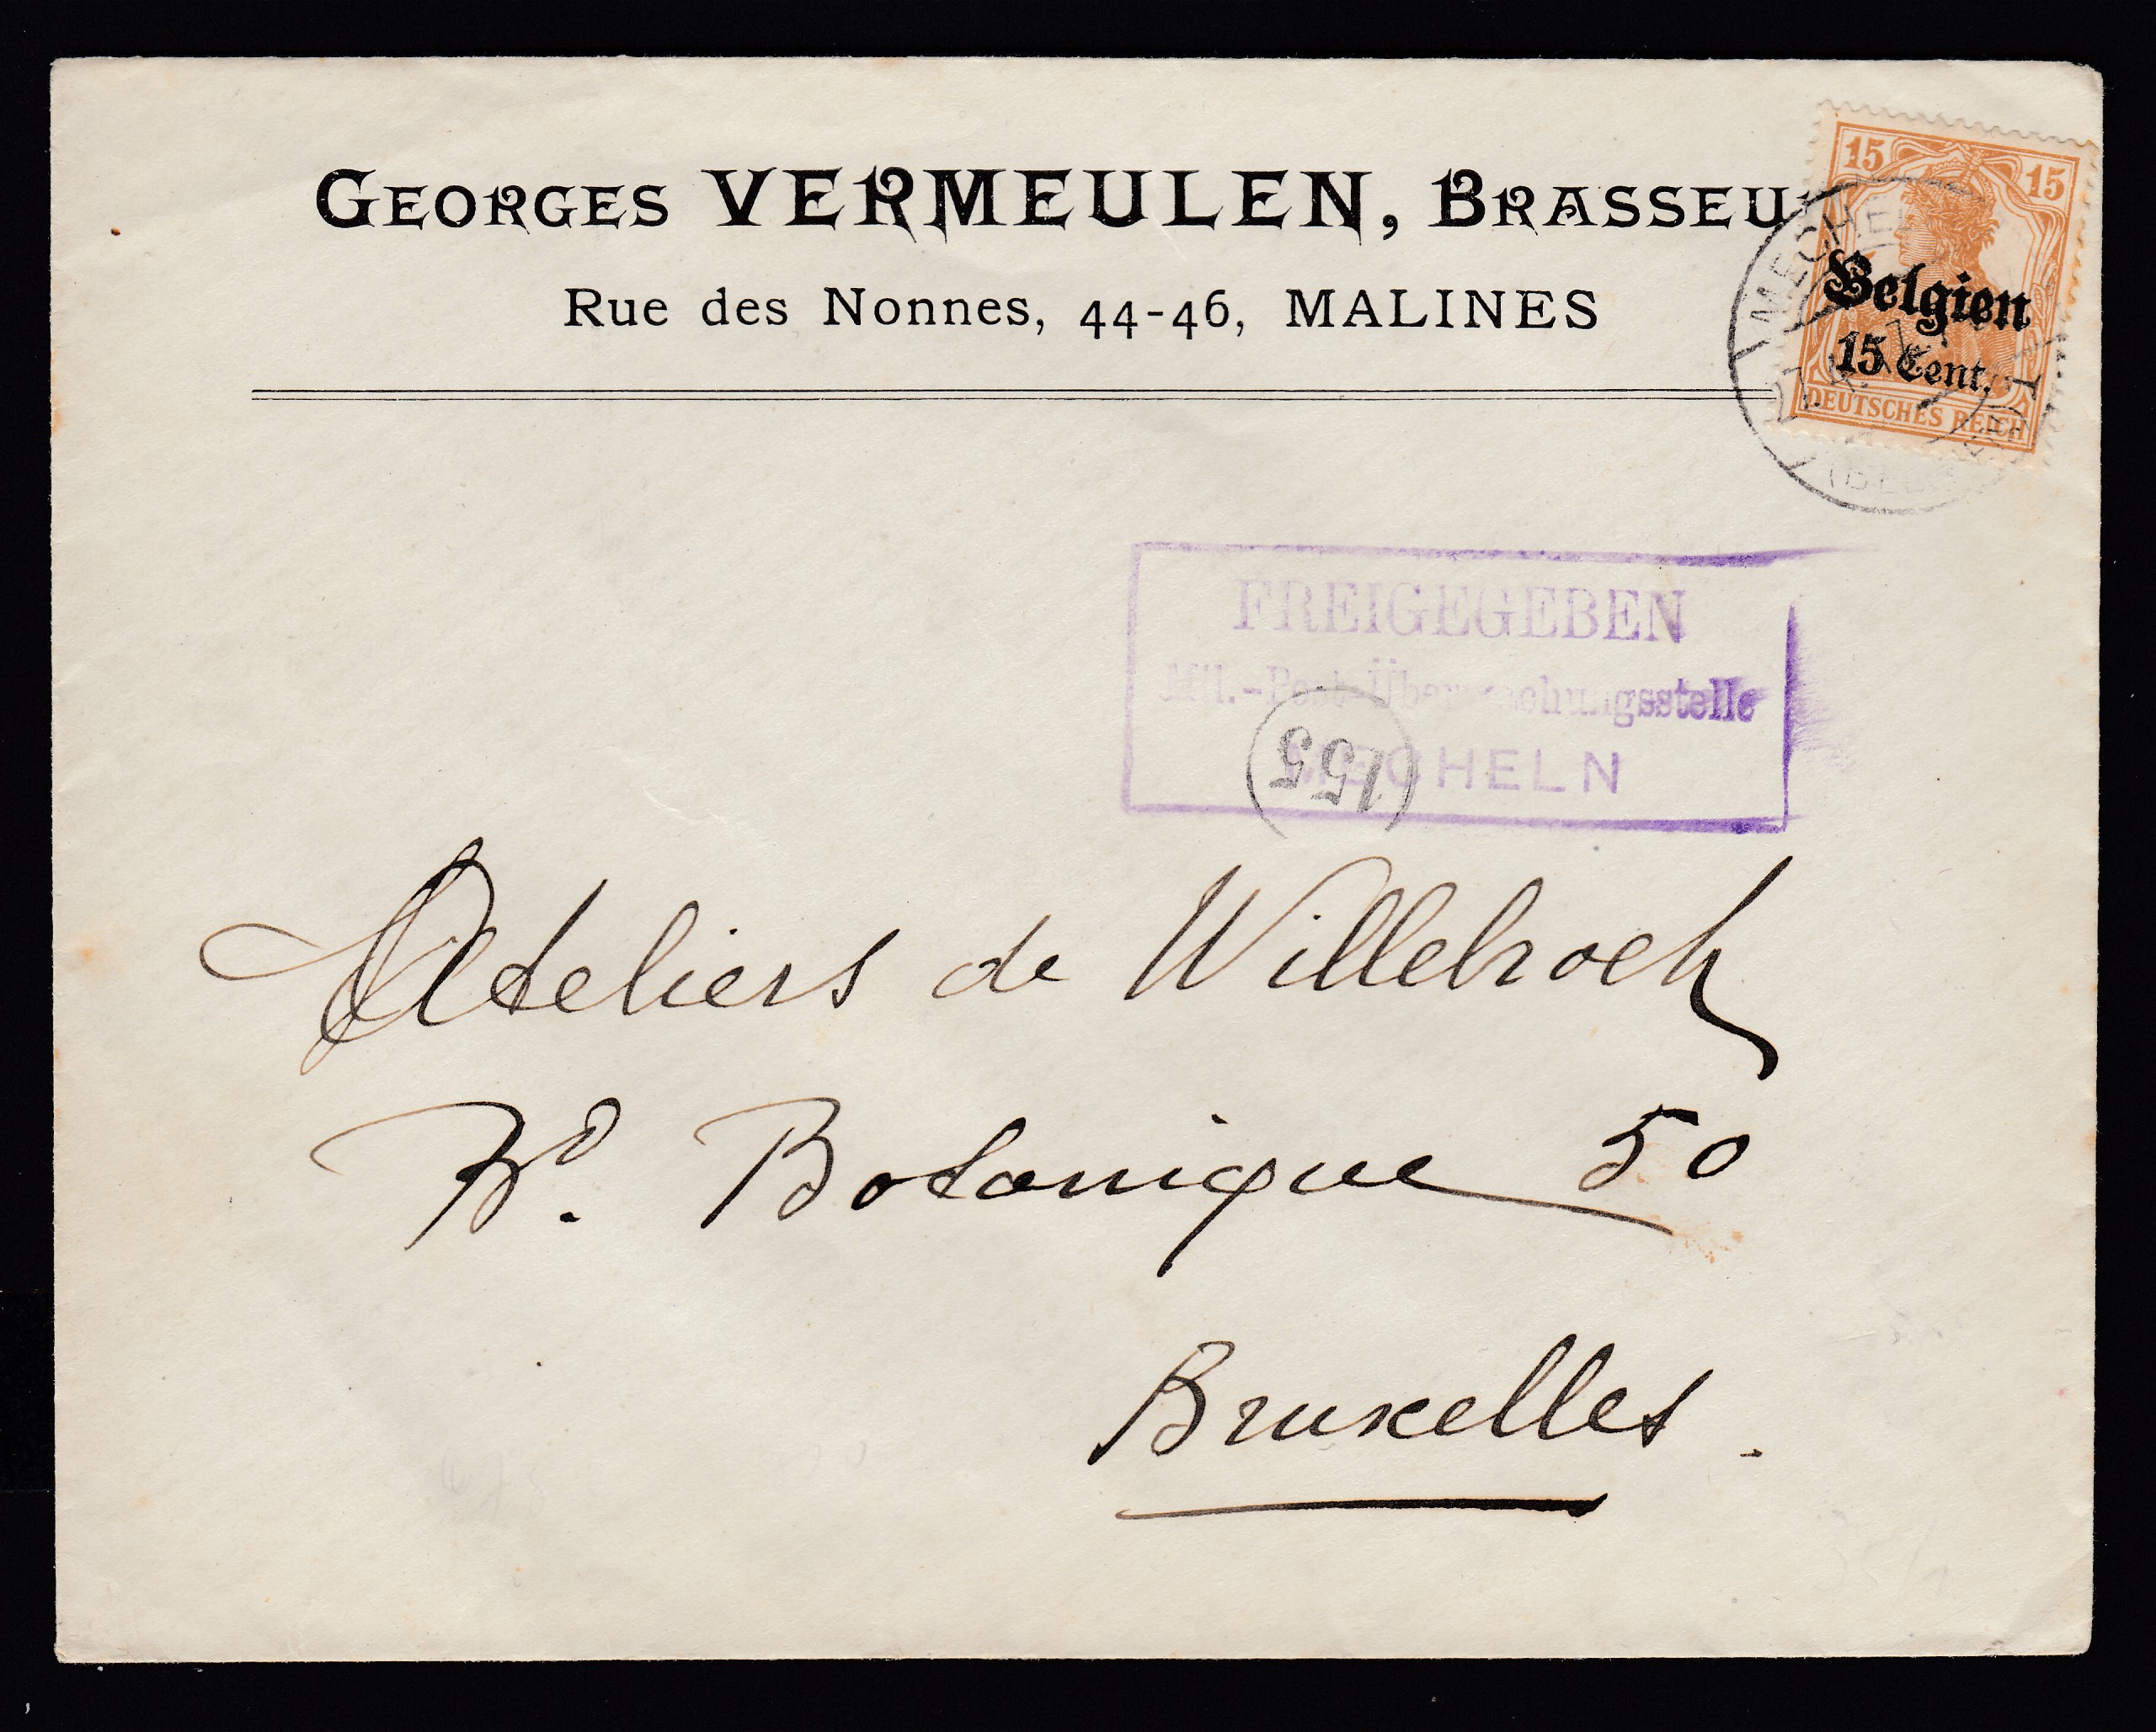 GEORGES VERMEULEN, BRASSEU
Rue des Nonnes, 44-46, MALINES
15 15
Belgien
15 Cent.
DEUTSCHES REICH
MECHEL
FREIGEGEBEN
Mil.-Post-Überwachungsstelle
MECHELN
155
Ateliers de Willebroek
Bd. Botanique 50
Bruxelles.